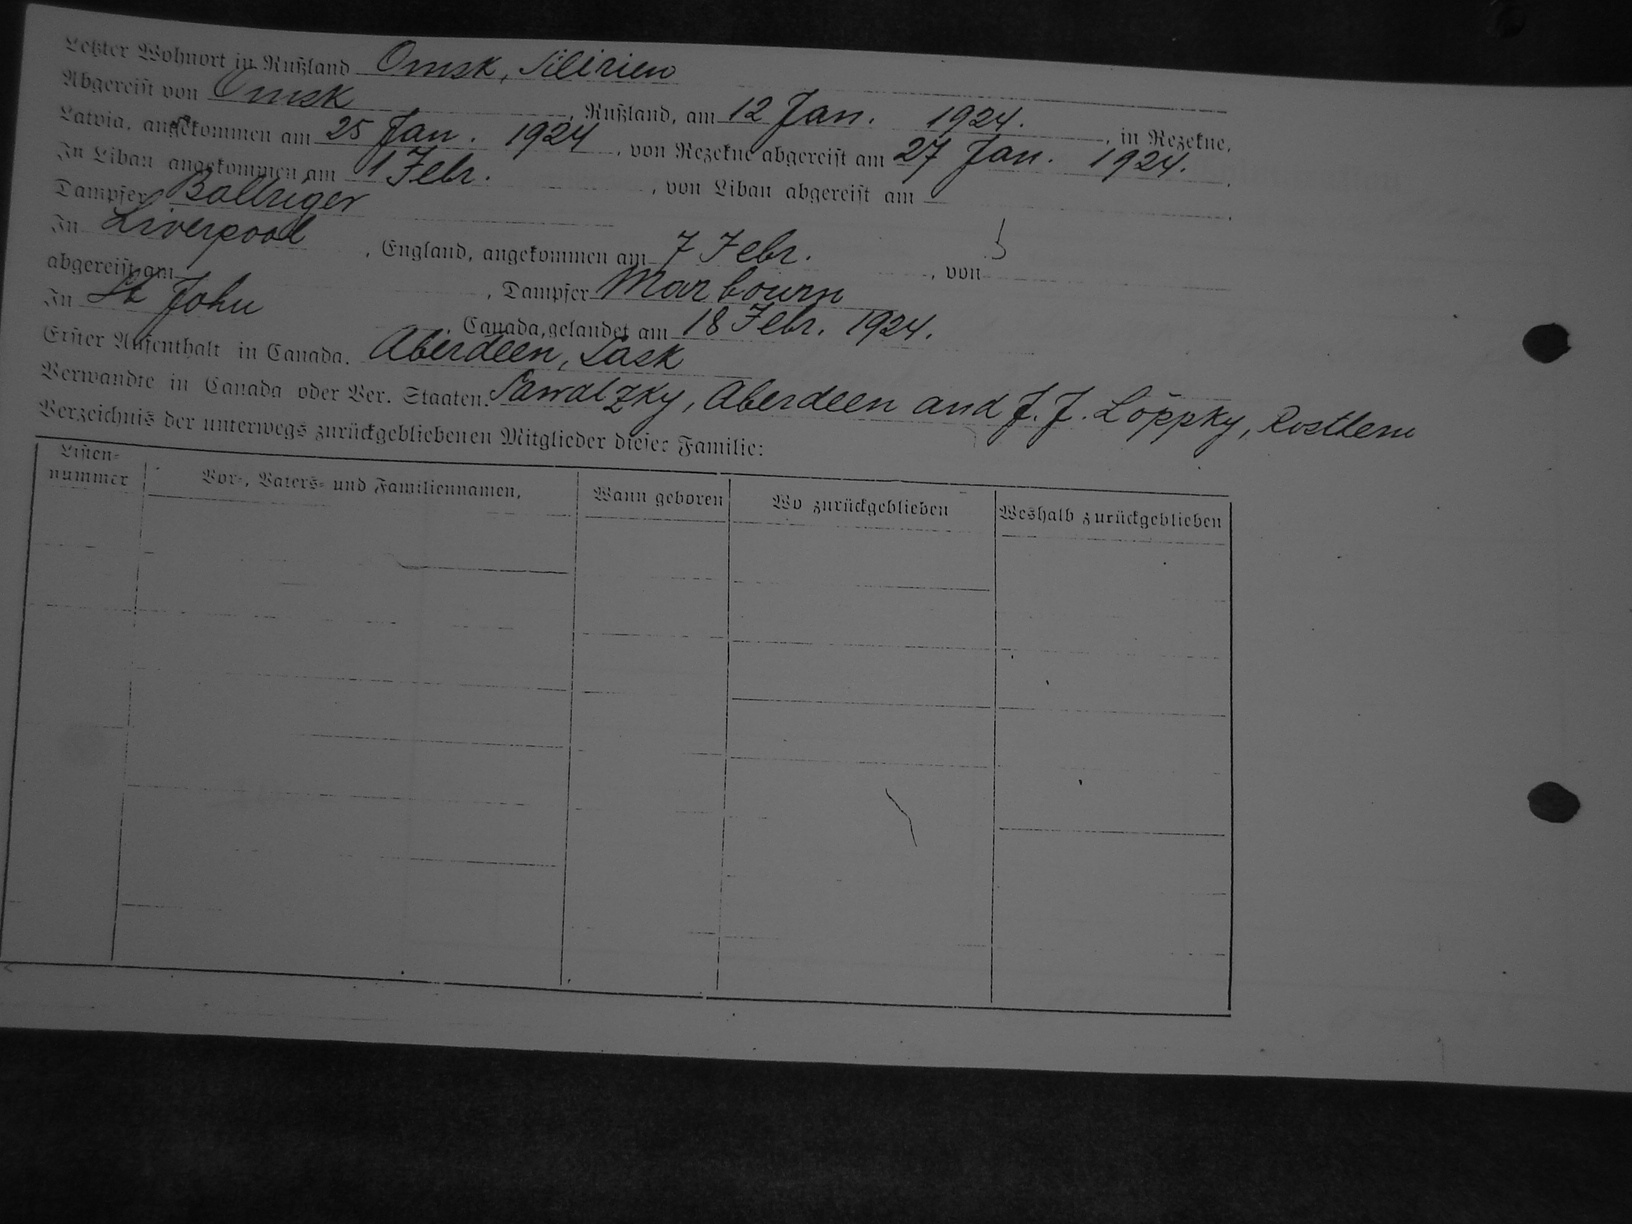 Letzter Wohnort in Rußland Omsk, Sibirien
Abgereist von Omsk, Rußland, am 12 Jan. 1924., in Rezekne,
Latvia, angekommen am 25 Jan. 1924, von Rezekne abgereist am 27 Jan. 1924.
In Libau angekommen am 1 Febr., von Libau abgereist am
Dampfer Baltriger
In Liverpool, England, angekommen am 7 Febr., von
abgereist am, Dampfer Marbourn
In St John, Canada, gelandet am 18 Febr. 1924.
Erster Aufenthalt in Canada. Aberdeen, Sask
Verwandte in Canada oder Ver. Staaten. Sawatzky, Aberdeen and J. J. Löppky, Rosthern
Verzeichnis der unterwegs zurückgebliebenen Mitglieder dieser Familie:
Listen-
nummer
Vor-, Vaters- und Familiennamen,
Wann geboren
Wo zurückgeblieben
Weshalb zurückgeblieben